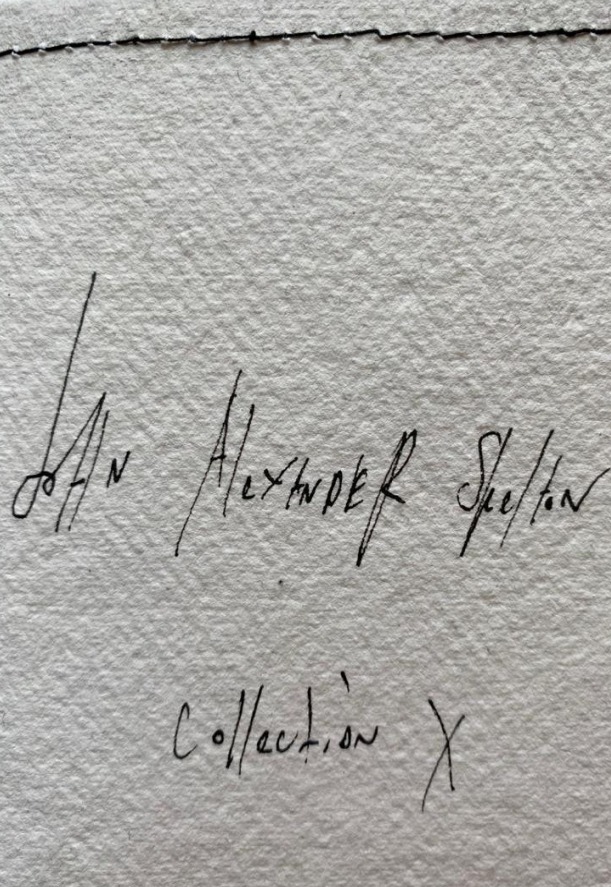 John Alexander Skelton
Collection X